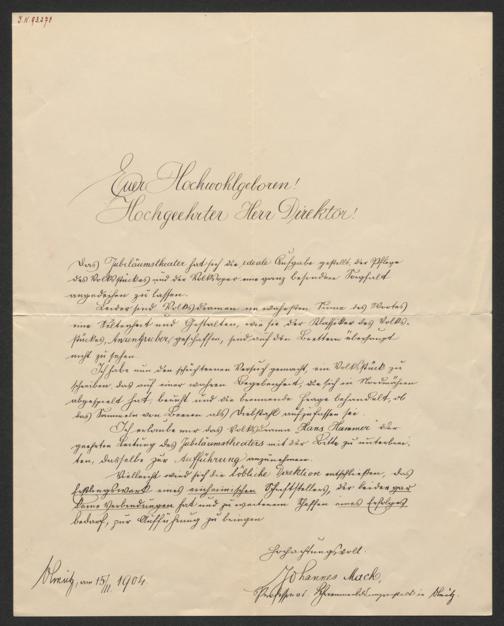 J.N. 93.278
Euer Hochwohlgeboren!
Hochgeehrter Herr Direktor!
Das Jubiläumstheater hat sich die ideale Aufgabe gestellt, der Pflege
des Volksstückes und der Volksoper eine ganz besondere Sorgfalt
angedeihen zu lassen.
Leider sind Volksdramen im wahrsten Sinne des Wortes
eine Seltenheit und Gestalten, wie sie der Klassiker des Volks-
stückes, Anzengruber, geschaffen, sind auf den Brettern überhaupt
nicht zu sehen.
Ich habe nun den schüchternen Versuch gemacht, ein Volksstück zu
schreiben, das auf einer wahren Begebenheit, die sich in Nordmähren
abgespielt hat, beruht und die brennende Frage behandelt, ob
das Sammeln von Beeren als Diebstahl aufzufassen sei.
Ich erlaube mir das Volksdrama Hans Hammer der
geehrten Leitung des Jubiläumstheaters mit der Bitte zu unterbrei-
ten, dasselbe zur Aufführung anzunehmen.
Vielleicht wird sich die löbliche Direktion entschließen, das
Erstlingswerk eines einheimischen Schriftstellers, der leider gar
keine Verbindungen hat und zu weiterem Schaffen eines Erfolges
bedarf, zur Aufführung zu bringen.
Hochachtungsvoll
Johannes Mack,
Professor in Olmütz.
Olmütz, am 15/II 1904